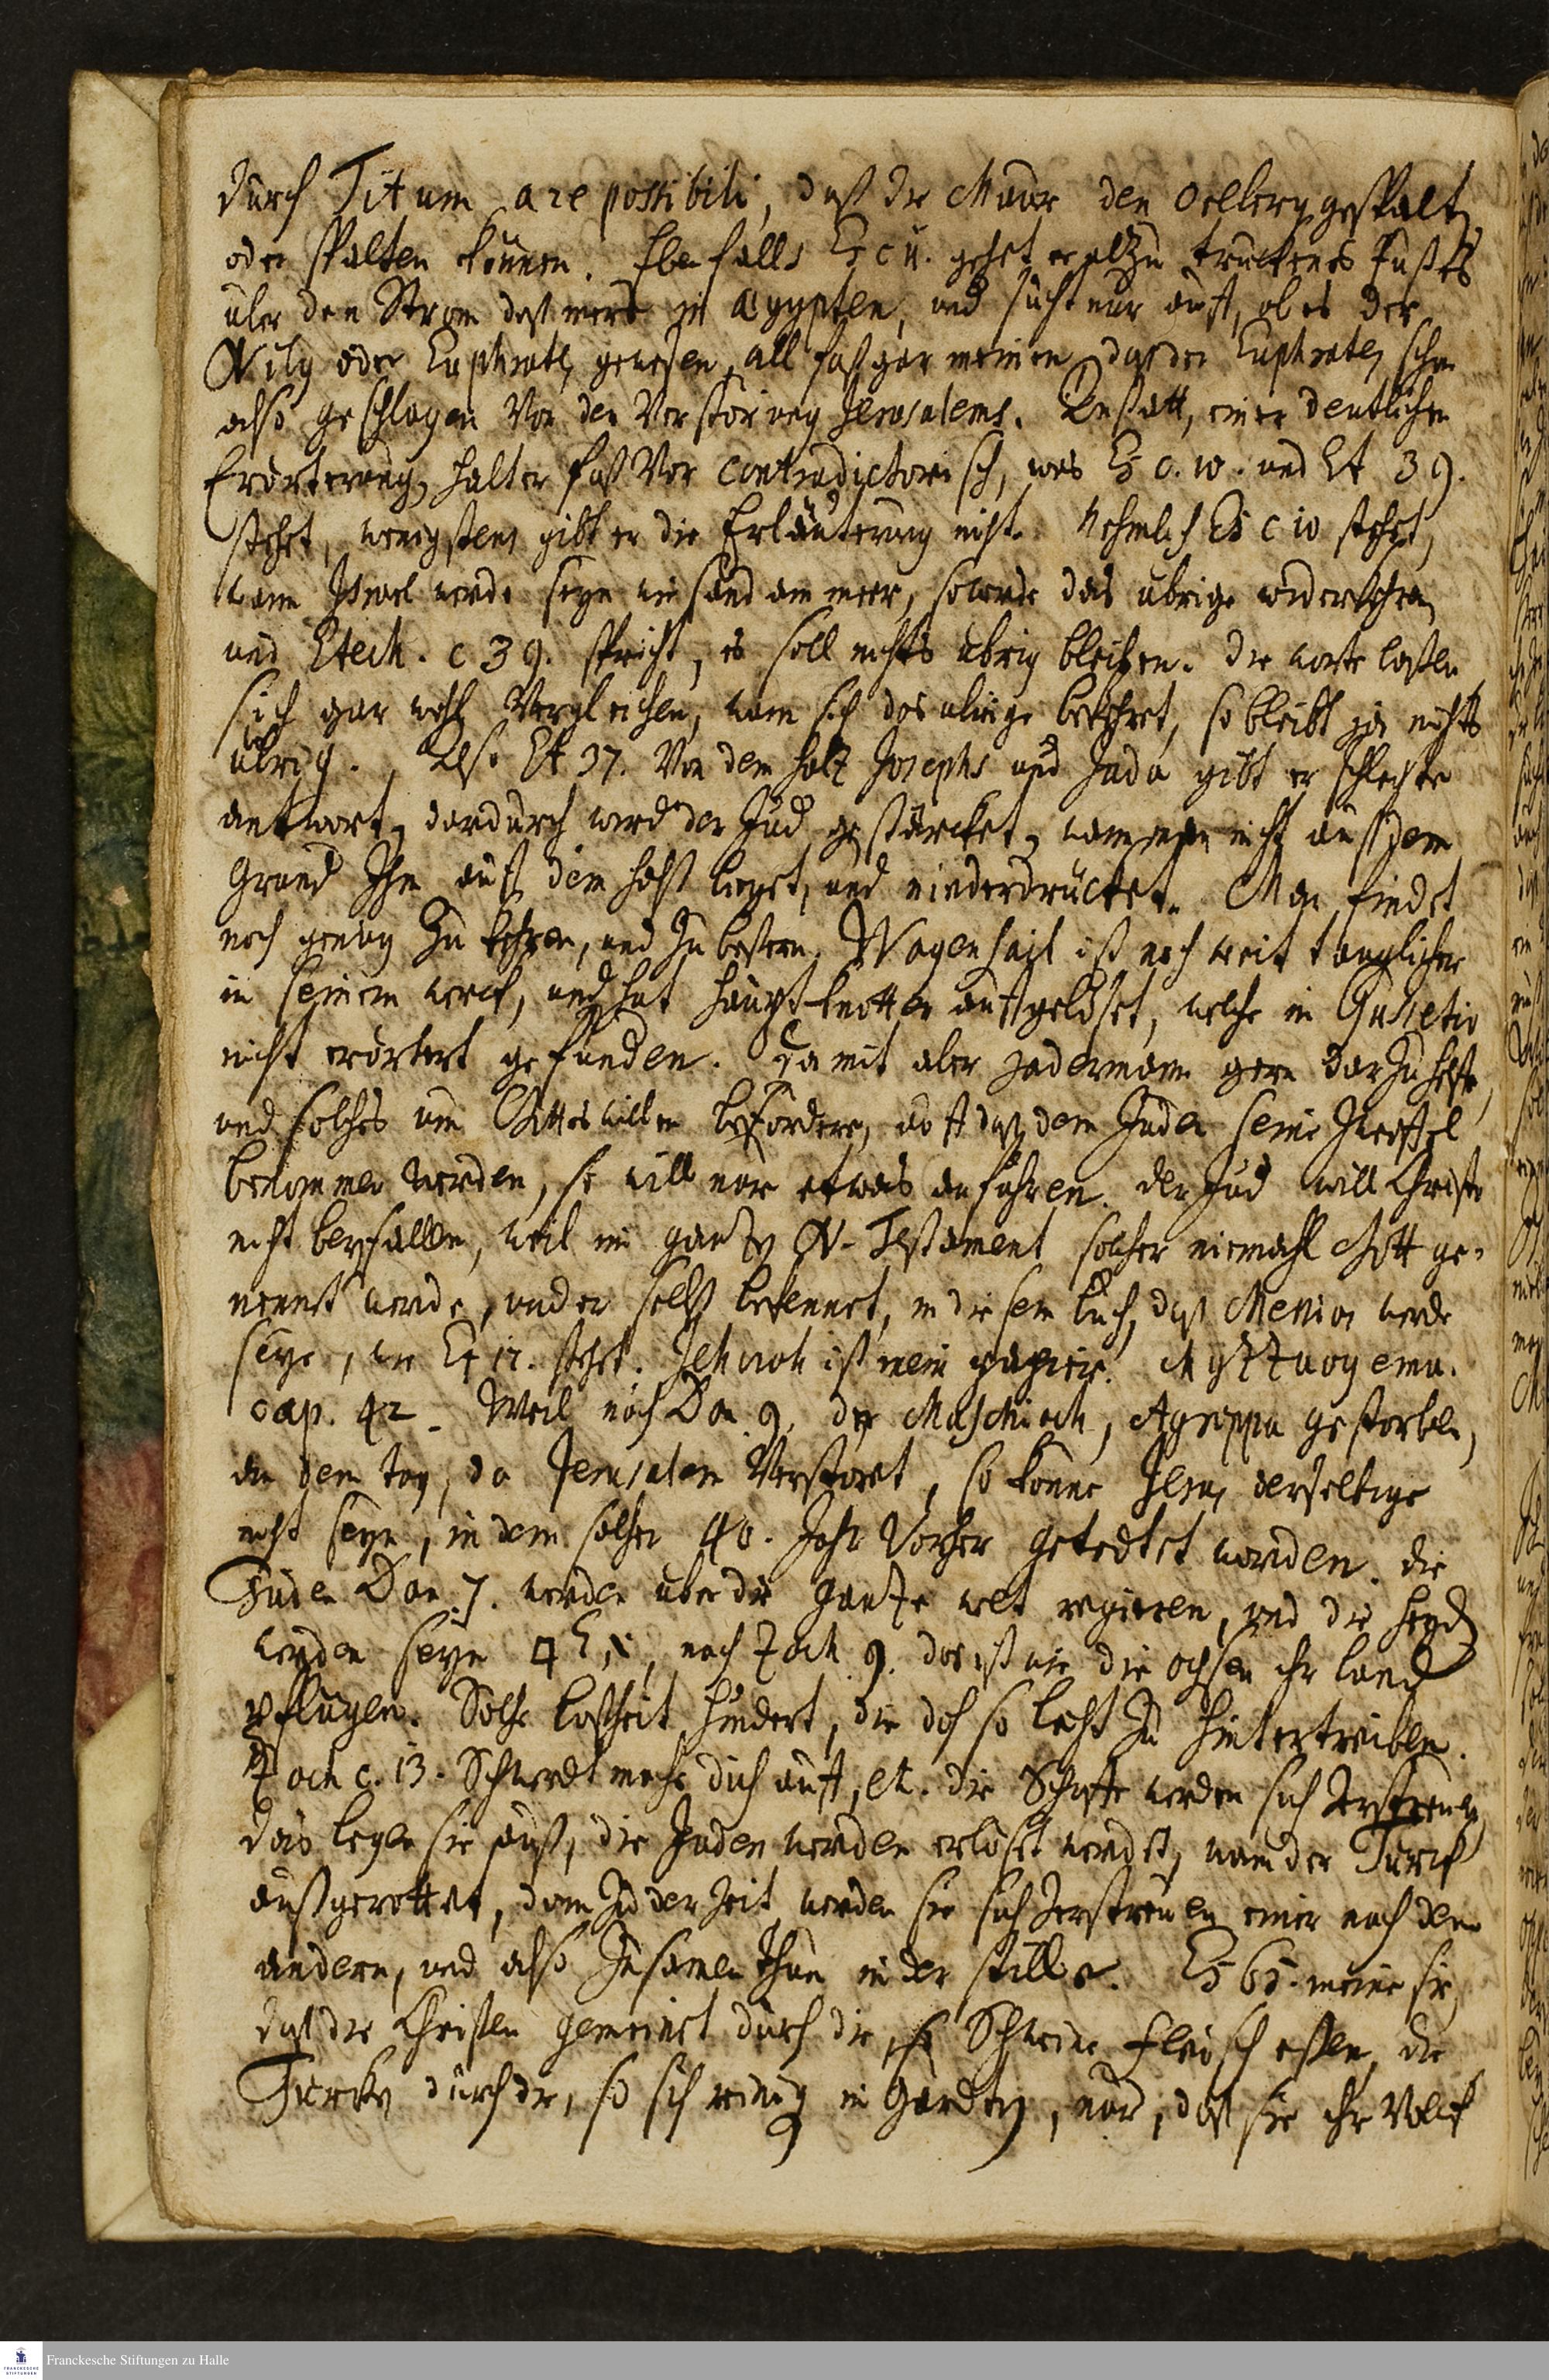 durch Titum a re possibili, daß die Maur den Oelberg gespalt,
oder spalten können. Ebenfalls Es c 11. gehet er alzu truckenes Fußes
über den Strom deß meers in Ægypten, und sucht nur auß, ob es der
Nilus oder Euphrates gewesen, will fast gar meinen, daß der Euphrates schon
also geschlagen vor der Verstörung Jerusalems. Anstatt, einer deutlichen
Erörterung, halt er fast vor contradictorisch, was Es c. 10. und Ez 39.
stehet, wenigstens gibt er die Erläuterung nicht. Nehmlich Es c 10 stehet,
wann Israel werde seyn wie sand am meer, so werde das übrige widerkehren,
und Ezech. c 39. spricht, es soll nichts übrig bleiben. Die worte laßen
sich gar wohl vergleichen, wann sich das übrige bekehret, so bleibt ja nichts
übrig. Also Ez 37. Von dem holz Josephs und Juda gibt er schlechte
antwort, dardurch wird der Jud gestärcket, wann man nicht auß dem
Grund Ihm auf dem halß lieget, und niederdrücket. Man findet
noch genug zu kehren, und zu beßern. Wagenseil ist noch weit tauglicher
in seinem werck, und hat haupt knotten aufgelöset, welche in Gussetio
nicht erörtert gefunden. Damit aber jederman gern darzu helfe,
und solches um Gottes willen befördere, daß dem Juden seine Zweiffel
benommen werden, so will nur etwas anführen. Der Jud will Christo
nicht beyfallen, weil im gantzen N. Testament solcher niemahl Gott ge-
nennt werde, und er selbst bekennet, in diesem buch, daß Messias werde
seyn, wie Es 12. stehet. Jehovah ist mein
cap. 42. Weil nach Dan 9. der Maschiach, Agrippa gestorben,
an dem tag, da Jerusalem verstöret, so könne Jesus derselbige
nicht seyn, in dem solcher 40. Jahr vorher getödtet worden. Die
Juden Dan. 7. werden über die gantze welt regieren, und die heyden
werden seyn nach Zach 9. das ist wie die ochsen ihr land
pflügen. Solche boßheit hindert, die doch so leicht zu hintertreiben.
Zach c. 13. Schwerdt mache dich auf, etc. die Schaffe werden sich zerstreuen,
das legen sie auß, die Juden werden erlöset werden, wann der Türck
außgerottet, dann zu der Zeit werden sie sich zerstreuen einer nach dem
andern, und also zusamen thun in der stille. Es 65. meinen sie,
daß die Christen gemeinet durch die, so Schweine fleisch eßen, die
Türcken durch die, so sich reinigen in Gärten, und, daß sie ihr Volck
Franckesche Stiftungen zu Halle